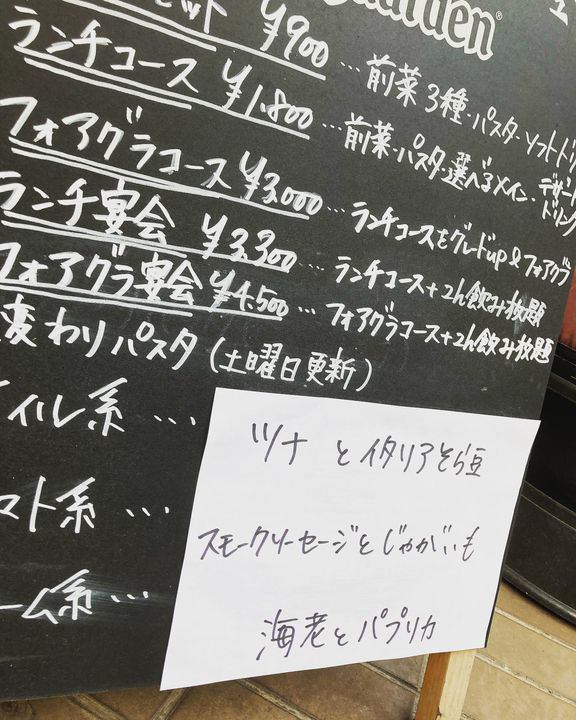 garden®
セット ¥900 … 前菜3種・パスタ・ソフトドリ
ランチコース ¥1,800 … 前菜・パスタ・選べるメイン・デザート ドリンク
フォアグラコース ¥3,000 … ランチコースをグレードup&フォアグラ
ランチ宴会 ¥3,300 … ランチコース+2h飲み放題
フォアグラ宴会 ¥4,500 … フォアグラコース+2h飲み放題
変わりパスタ (土曜日更新)
イル系 … ツナ と イタリアそら豆
マト系 … スモークソーセージとじゃがいも
ーム系 … 海老とパプリカ